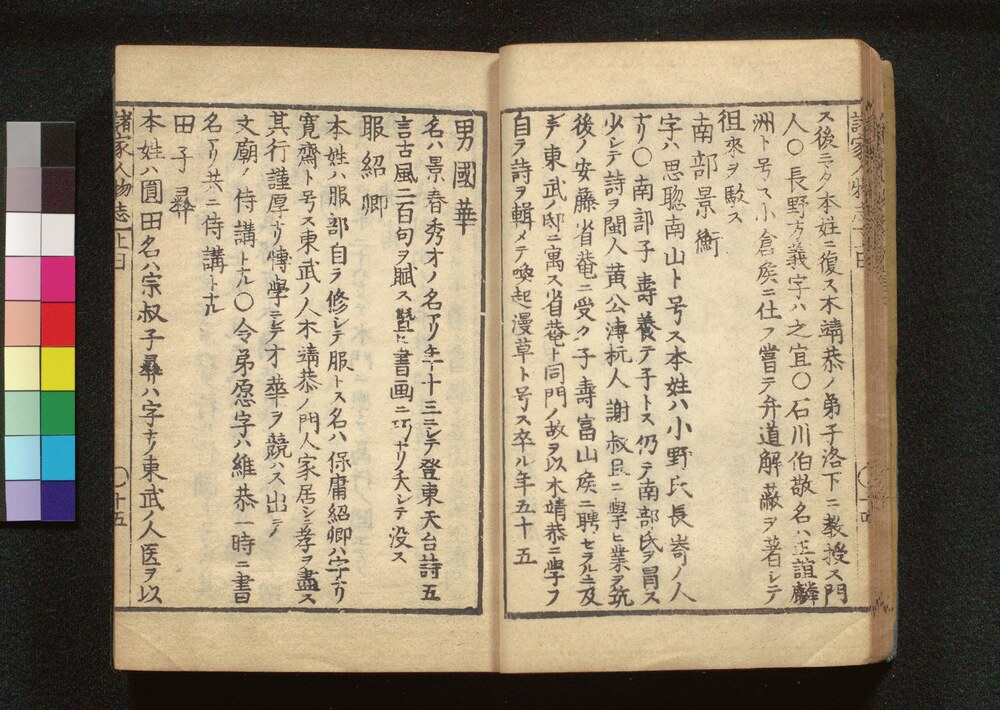 ス後ニタノ本姓ニ復ス木靖恭ノ弟子洛下ニ教授ス門
人〇長野方義字ハ之宜〇石川伯敬名ハ正誼麟
洲ト号ス小倉矦ニ仕フ嘗テ弁道解蔽ヲ著シテ
徂來ヲ駁ス
南部景衡
字ハ思聡南山ト号ス本姓ハ小野氏長崎ノ人
ナリ〇南部子壽養テ子トス仍テ南部氏ヲ冒ス
少シテ詩ヲ閩人黄公溥杭人謝叔且ニ學ヒ業ヲ筑
後ノ安藤省菴ニ受ク子壽富山矦ニ聘セラルニ及
テ東武ノ邸ニ寓ス省菴ト同門ノ故ヲ以木靖恭ニ學フ
自ラ詩ヲ輯メテ喚起漫草ト号ス卒ル年五十五
男國華
名ハ景春秀才ノ名アリ年十三ニシテ登東天台詩五
言古風二百句ヲ賦ス曁ヒ書画ニ巧ナリ夭シテ没ス
服紹卿
本姓ハ服部自ラ修シテ服トス名ハ保庸紹卿ハ字ナリ
寛齋ト号ス東武ノ人木靖恭ノ門人家居シ孝ヲ盡ス
其行謹厚ナリ慱學ニシテ才華ヲ競ハス出テ
文廟ノ侍講トナル〇令弟愿字ハ維恭一時ニ書
名アリ共ニ侍講トナル
田子彝
本姓ハ圓田名ハ宗叔子彝ハ字ナリ東武ノ人医ヲ以
諸家人物志 上
十五